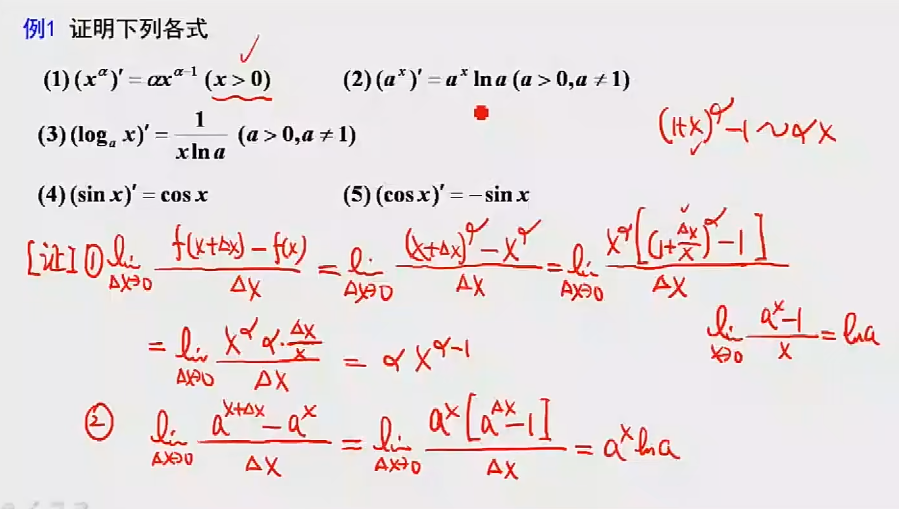 例1 证明下列各式
(1) (x^α)' = αx^(α-1) (x > 0) (2) (a^x)' = a^x ln a (a > 0, a ≠ 1)
(3) (log_a x)' = 1/(x ln a) (a > 0, a ≠ 1)
(1+x)^α -1 ~ αx
(4) (sin x)' = cos x (5) (cos x)' = -sin x
[证] ① lim_(Δx→0) (f(x+Δx) - f(x))/Δx = lim_(Δx→0) ((x+Δx)^α - x^α)/Δx = lim_(Δx→0) x^α[(1+Δx/x)^α - 1]/Δx
= lim_(Δx→0) (x^α α·Δx/x)/Δx = αx^(α-1)
lim_(x→0) (a^x - 1)/x = ln a
② lim_(Δx→0) (a^(x+Δx) - a^x)/Δx = lim_(Δx→0) a^x[a^Δx - 1]/Δx = a^x ln a